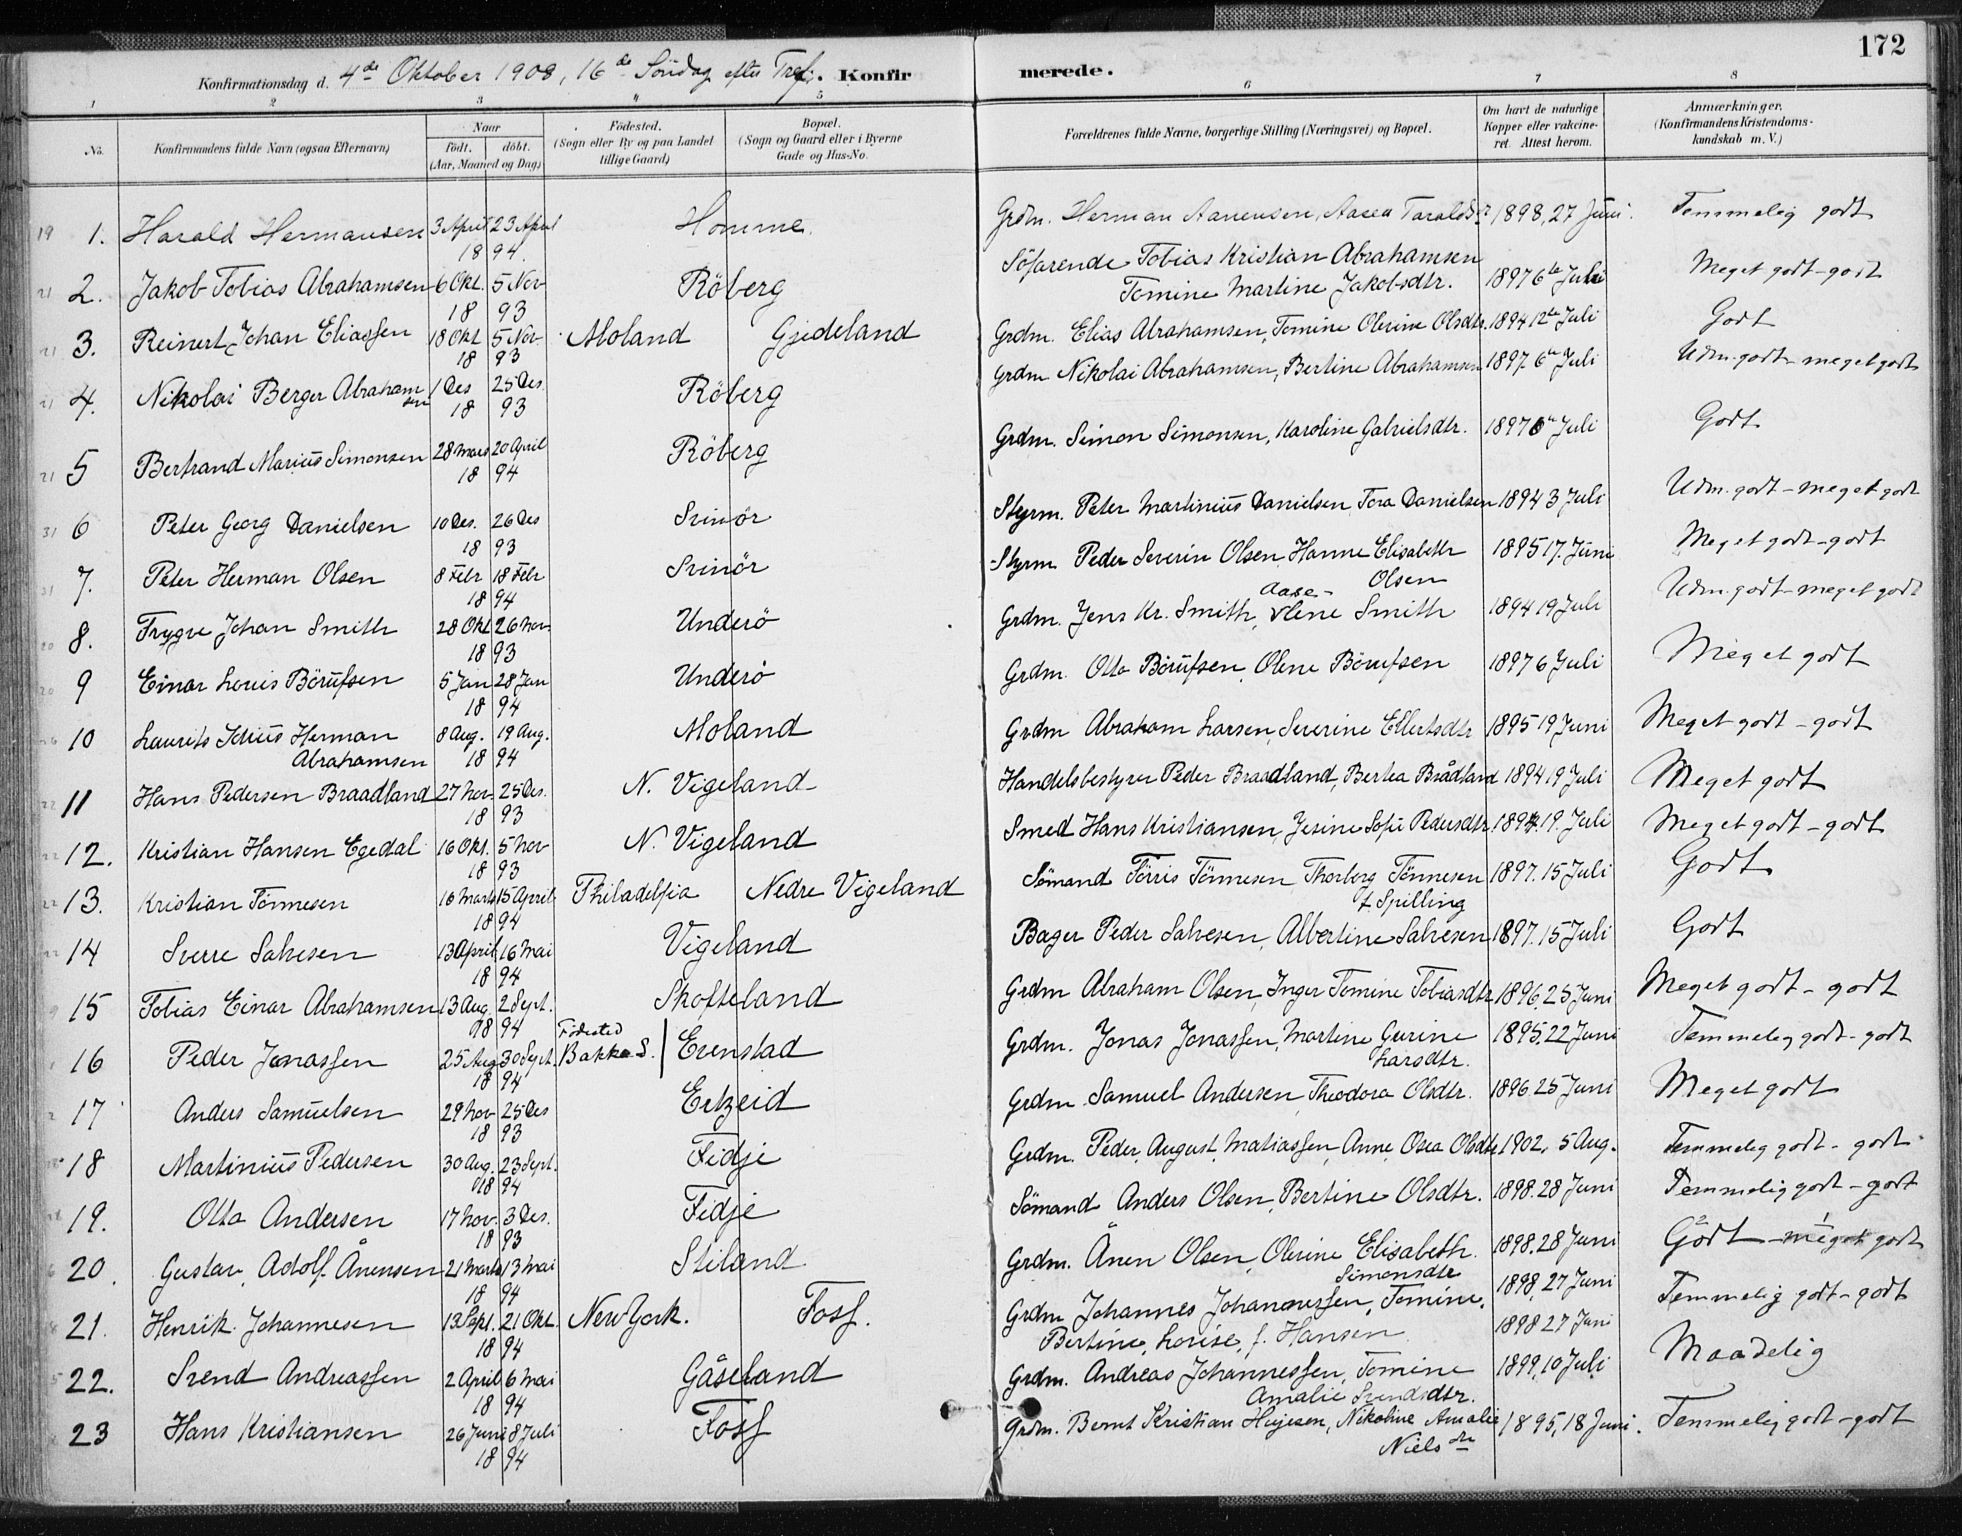 172
Konfirmationsdag d. 4de Oktober 1908, 16de Söndag efter Tref. Konfirmerede.
1 2 3 4 5 6 7 8
No. Konfirmandens fulde Navn (ogsaa Efternavn) Naar födt. döbt. (Aar, Maaned og Dag) Födested. (Sogn eller By og paa Landet tillige Gaard) Bopæl. (Sogn og Gaard eller i Byerne Gade og Hus-No. Forældrenes fulde Navne, borgerlige Stilling (Næringsvei) og Bopæl. Om havt de naturlige Kopper eller vakcineret. Attest herom. Anmærkninger. (Konfirmandens Kristendomskundskab m. V.)
19 1. Harald Hermansen 3 April 23 April 1894. Homme. Grdm. Herman Aanensen, Aasea Taraldsd 1898, 27 Juni. Temmelig godt
21 2. Jakob Tobias Abrahamsen 6 Okt. 5 Nov 1893 Röberg Söfarende Tobias Kristian Abrahamsen
Tomine Martine Jakobsdtr. 1897 6te Juli Meget godt-godt
21 3. Reinert Johan Eliassen 18 Okt 5 Nov 1893 Moland Gjideland Grdm. Elias Abrahamsen, Tomine Olerine Olsdtr. 1894 12te Juli Godt
21 4. Nikolai Berger Abrahamsen 1 Des 25 Des. 1893 Röberg Grdm Nikolai Abrahamsen, Bertine Abrahamsen 1897. 6te Juli Udm. godt - meget godt
21 5 Bertrand Marius Simonsen 28 Mars 20 April 1894 Röberg Grdm. Simon Simonsen, Karoline Gabrielsdtr. 1897 6te Juli Godt
31 6 Peter Georg Danielsen 10 Des. 26 Des 1893 Svinör Styrm. Peter Martinius Danielsen, Tora Danielsen 1894 3 Juli Udm. godt - meget godt
31 7. Peter Herman Olsen 8 Febr 18 Febr 1894 Svinör Styrm Peder Severin Olsen, Hanne Elisabeth Olsen 1895 17. Juni Meget godt-godt
20 8. Trygve Johan Smith 28 Okt 26 Nov. 1893 Underö Grdm. Jens Kr. Smith, Aase- Vlene Smith 1894 19 Juli Udm. godt - meget godt
20 9 Einar Louis Börufsen 5 Jan 28 Jan 1894 Underö Grdm. Otto Börufsen, Olene Börufsen 1897 6 Juli Meget godt
10 Laurits Julius Herman Abrahamsen 8 Aug. 19 Aug. 1894 Moland Grdm Abraham Larsen, Severine Ellertsdtr 1895 19 Juni Meget godt - godt
22 11 Hans Pedersen Braadland 27 Nov. 25 Des. 1893 N. Vigeland Handelsbestyrer Peder Braadland, Bertea Brådland 1894 19 Juli Meget godt
22 12. Kristian Hansen Egedal 16 Okt. 5 Nov 1893 N. Vigeland Smed Hans Kristiansen, Jesine Sofie Pedersdtr 1894. 19. Juli Meget godt - godt
22 13. Kristian Tönnesen 16 Marts 15 April 1894 Philadelfia Nedre Vigeland Sömand Törris Tönnesen Thorborg Tönnesen
f. Spilling 1897. 15 Juli Godt
22 14 Sverre Salvesen 13 April 16 Mai 1894 Vigeland Bager Peder Salvesen, Albertine Salvesen 1897. 15 Juli Godt
15 Tobias Einar Abrahamsen 13 Aug. 2 Sept. 1894 Skofteland Grdm Abraham Olsen, Inger Tomine Tobiasdtr 1896, 25 Juni Meget godt - godt
16 Peder Jonassen 25 Aug 30 Sept. 1894 Födested Bakke S. Evenstad Grdm. Jonas Jonassen, Martine Gurine Larsdtr. 1895. 22 Juni Temmelig godt - godt
17 Anders Samuelsen 29 Nov 25 Des 1893 Erkzeid Grdm Samuel Andersen, Theodora Olsdtr. 1896 25 Juni Meget godt
18 Martinius Pedersen 30 Aug. 23 Sept. 1894 Fidje Grdm. Peder August Matiassen, Anne Osea Olsdtr 1902, 5 Aug. Temmelig godt - godt
19. Otto Andersen 17 Nov. 3 Des. 1893 Fidje Sömand Anders Olsen, Bertine Olsdtr. 1898. 28 Juni Temmelig godt - godt
20. Gustav Adolf Ånensen 21 Marts 13 Mai 1894 Stiland Grdm. Ånen Olsen, Olerine Elisabeth Simonsdtr 1898. 28 Juni Godt - meget godt
21. Henrik Johannesen 13 Sept. 21 Okt. 1894 New York. Foss. Grdm Johannes Johannessen, Tomine. 1898, 27 Juni Temmelig godt - godt
Bertine, Louise, f. Hansen 1898 27 Juni
22. Svend Andreassen 2 April 6 Mai 1894 Gåseland Grdm. Andreas Johannessen, Tomine
Amalie Svendsdtr. 1899, 10 Juli Maadelig
23 Hans Kristiansen 26 Juni 8 Juli 1894 Foss Grdm. Bernt Kristian Hujesen, Nikoline Amalie
Nielsdtr 1895, 18 Juni. Temmelig godt - godt